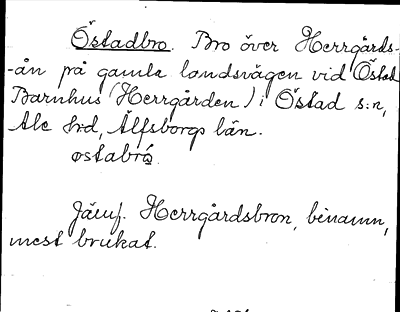 Östadbro. Bro över Herrgårds-
-ån på gamla landsvägen vid Östad
Barnhus (Herrgården) i Östad s:n,
Ale h:d, Älfsborgs län.
østabró.
Jämf. Herrgårdsbron, binamn,
mest brukat.